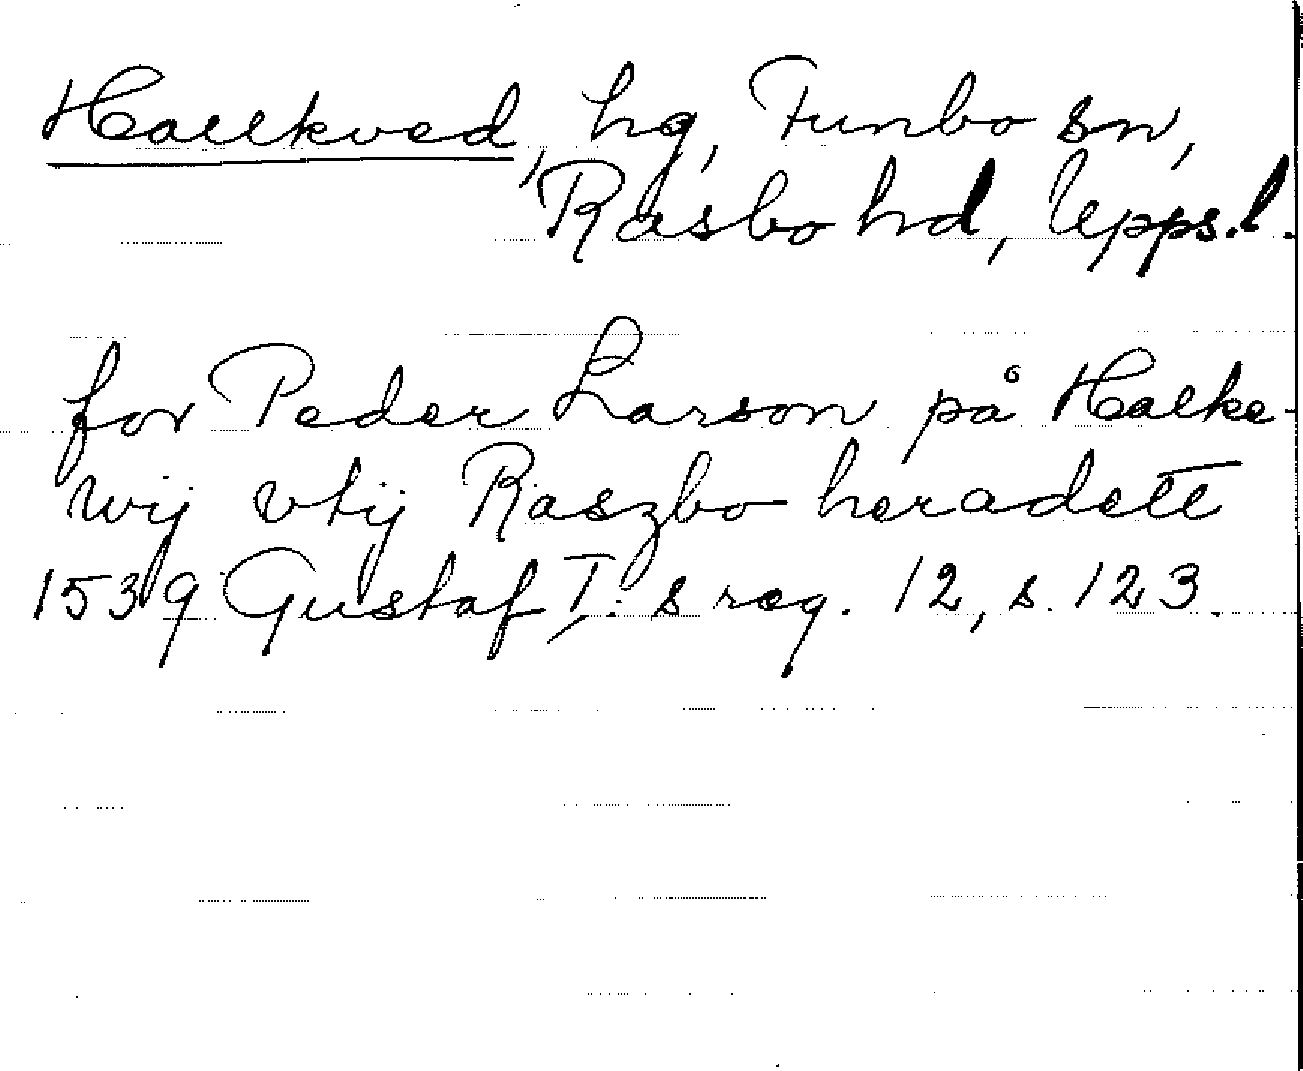 Hallkved, hg, Funbo sn,
Rasbo hd, Upps.l.
for Peder Larson på Halke-
wij vtij Raszbo heradett
1539 Gustaf I:s reg. 12, s. 123.